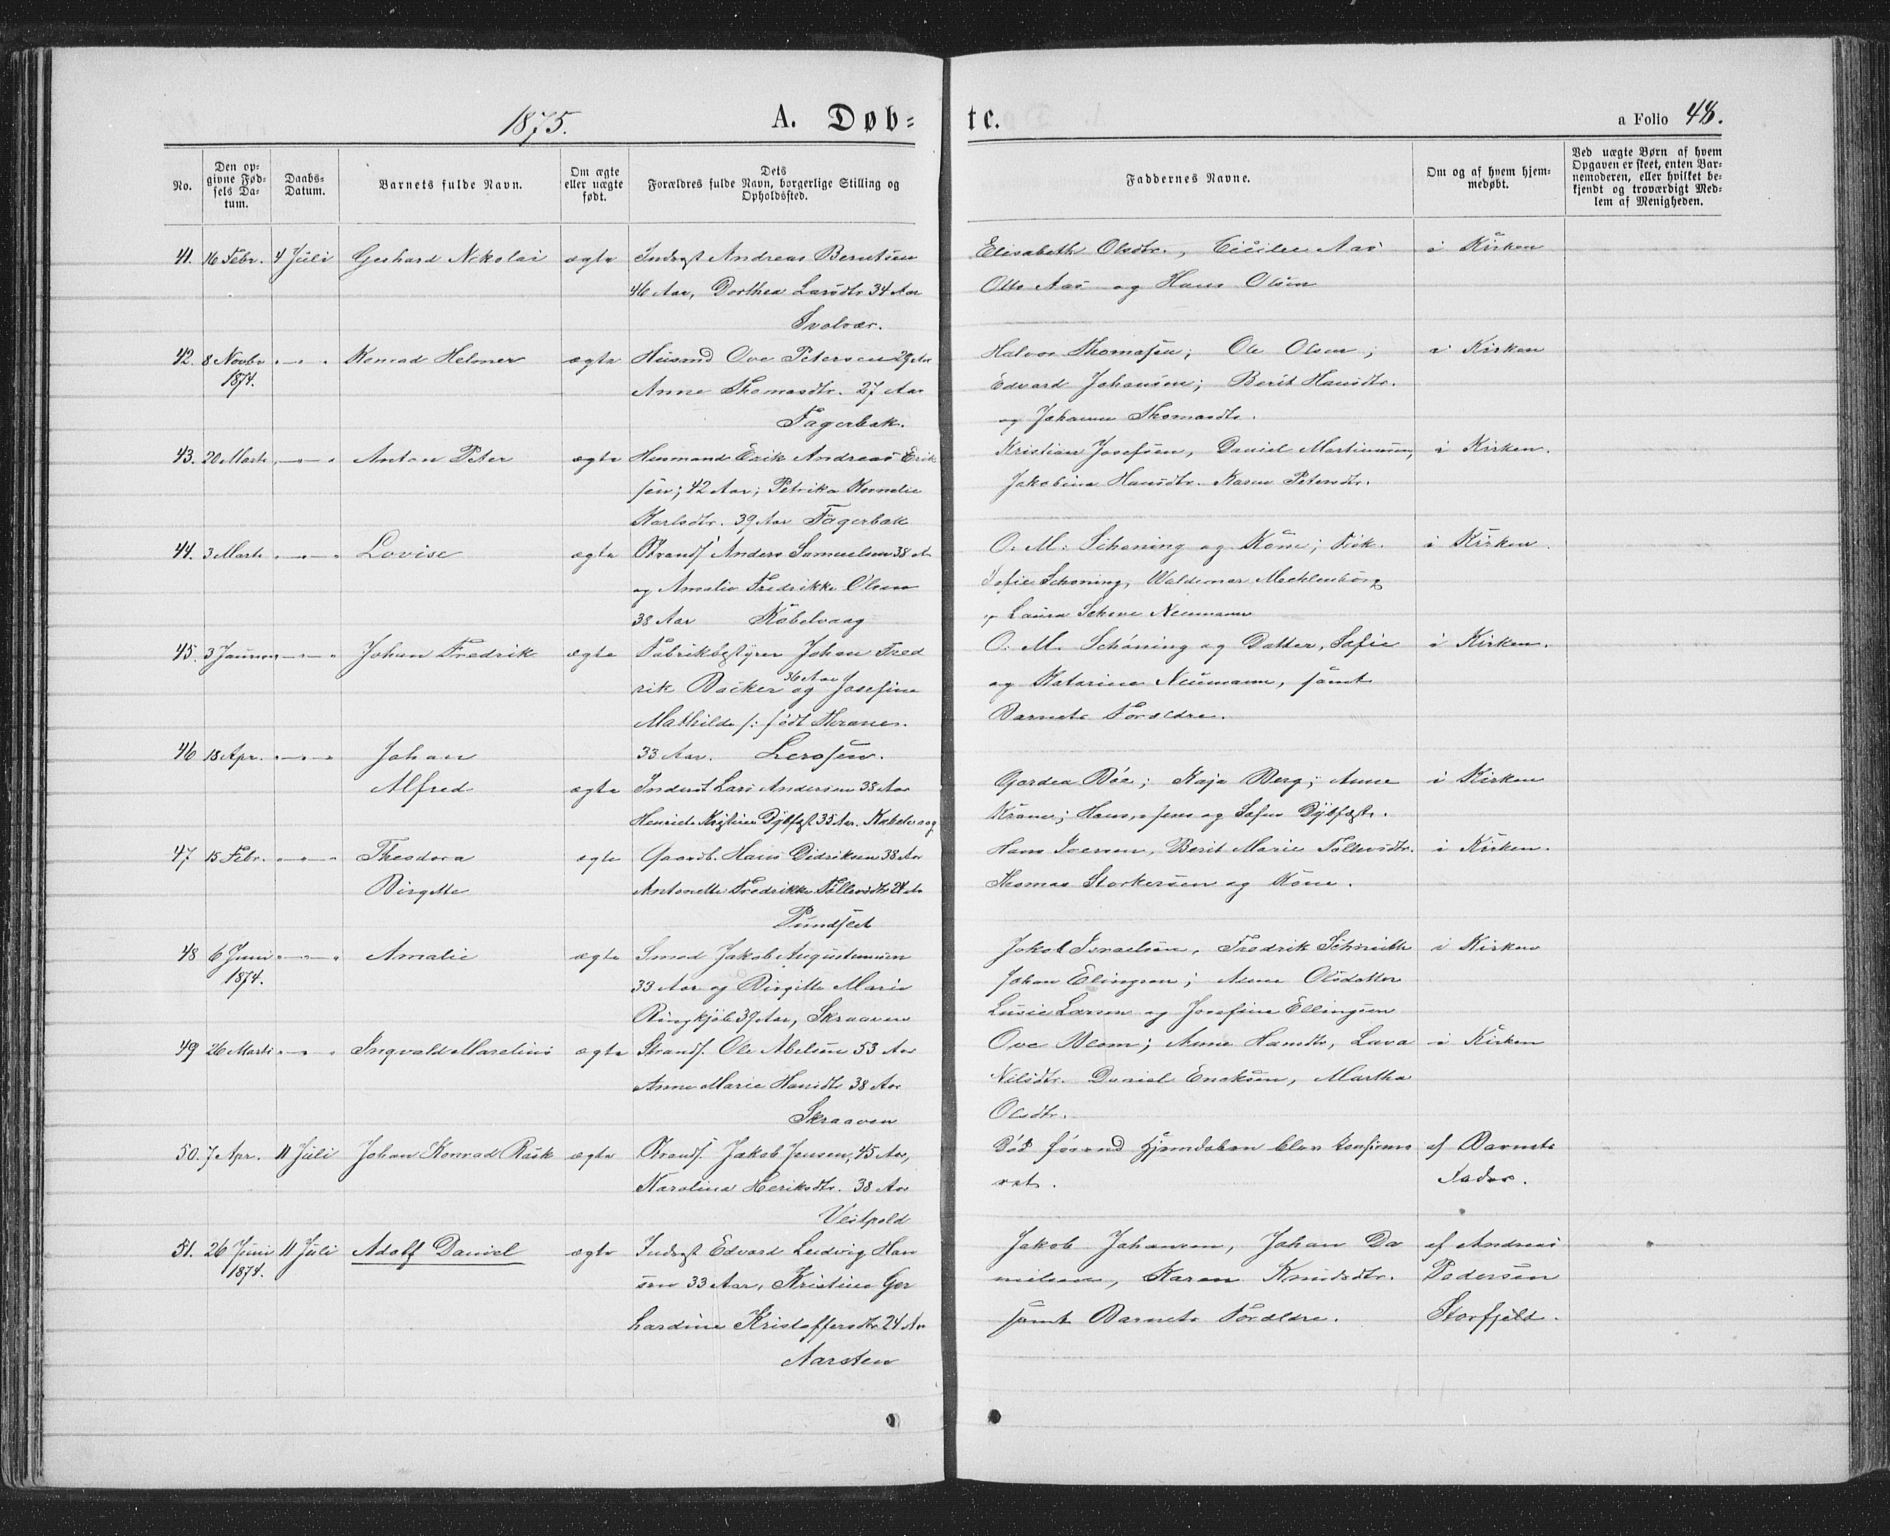 1875. A. Døb= te. a Folio 48.
No.
Den op=
givne Fød=
sels Da=
tum.
Daabs=
Datum.
Barnets fulde Navn.
Om ægte
eller uægte
født.
Dets
Forældres fulde Navn, borgerlige Stilling og
Opholdssted.
Faddernes Navne.
Om og af hvem hjem=
medøbt.
Ved uægte Børn af hvem
Opgaven er skeet, enten Bar=
nemoderen, eller hvilket be=
kjendt og troværdigt Med=
lem af Menigheden.
41. 16 Febr. 4 Juli Gerhard Nikolai ægte Indsgt Andreas Berntsen
46 Aar, Dorthea Larsdtr. 34 Aar
Svolvær.
Elisabeth Olsdtr., Cicilie Aas i Kirken
Otto Aas og Hans Olsen
42. 8 Novbr Konrad Helmer ægte Husmd Ove Petersen 29 Aar
1874. Anne Thomasdtr. 27 Aar
Fagerbak.
Halvor Thomasen; Ole Olsen; i Kirken
Edvard Johansen; Berit Hansdtr.
og Johanna Thomasdtr.
43. 20 Marts Anton Peter ægte Husmand Erik Andreas Erik
sen; 42 Aar; Petrika Kornelie
Karlsdtr. 39 Aar Fagerbak
Kristian Josefsen, Daniel Martinusen, i Kirken.
Jakobina Hansdtr. Karen Petersdtr.
44. 3 Marts Lovise ægte Strands. Anders Samuelsen 38 Aar
og Amalie Fredrikke Olsen
38 Aar Kabelvaag
O. M. Schøning og Kone; Frøk. i Kirken.
Sofie Schøning, Waldemar Mecklenburg
og Laura Neumann
45. 3 Januar Johan Fredrik ægte Fabrikbestyrer Johan Fred
rik Backer 36 Aar og Josefine
Mathilde /: født Thrane.
33 Aar. Lerosen.
O. M. Schøning og Datter, Sofie i Kirken.
og Katarine Neumann, samt
Barnets Forældre.
46 18 Apr. Johan
Alfred ægte Inderst Lars Andersen 38 Aar
Henriete Kristine Dybfest 35 Aar. Kabelvaag
Gjordea Bøe; Kaja Berg; Anne i Kirken
Kraner; Hans, Jens og Sofus Dybfest.
47 15 Febr. Theodora ægte Gaardb. Hans Didriksen 38 Aar
Birgitte Antonette Fredrikke Tollevsdtr 24 Aar
Pundslet
Hans Iversen, Berit Marie Tollevsdtr. i Kirken.
Thomas Storkersen og Kone.
48 6 Juni Amalie ægte Smed Jakob Augustinusen
1874. 33 Aar og Birgitte Marie
Ringkjøb 39 Aar, Skraaven
Jakob Israelsen, Fredrik Schmidt i Kirken
Johan Elingsen; Anne Olsdatter
Lusie Larsen og Josefine Ellingsen
49 26 Marts Ingvald Marelius ægte Strands. Ole Abelsen 53 Aar
Anne Marie Hansdtr 38 Aar
Skraaven
Ove Blom; Anne Hansdtr, Lava i Kirken
Nilsdtr. Daniel Enoksen, Martha
Olsdtr.
50. 7 Apr. 11 Juli Johan Konrad Rask ægte Strands. Jakob Jensen, 45 Aar,
Karolina Heriksdtr. 38 Aar
Vestpold
Død førend Hjemdaaben blev konfirme af Barnets
ret. Fader.
51. 26 Juni 11 Juli Adolf Daniel ægte Indsgt Edvard Ludvig Han
1874. sen 33 Aar, Kristine Ger
hardine Kristoffersdtr. 24 Aar
Aarsten
Jakob Johansen, Johan Da af Andreas
nielsen, Karen Knudsdtr. Pedersen
samt Barnets Forældre. Storfjeld.